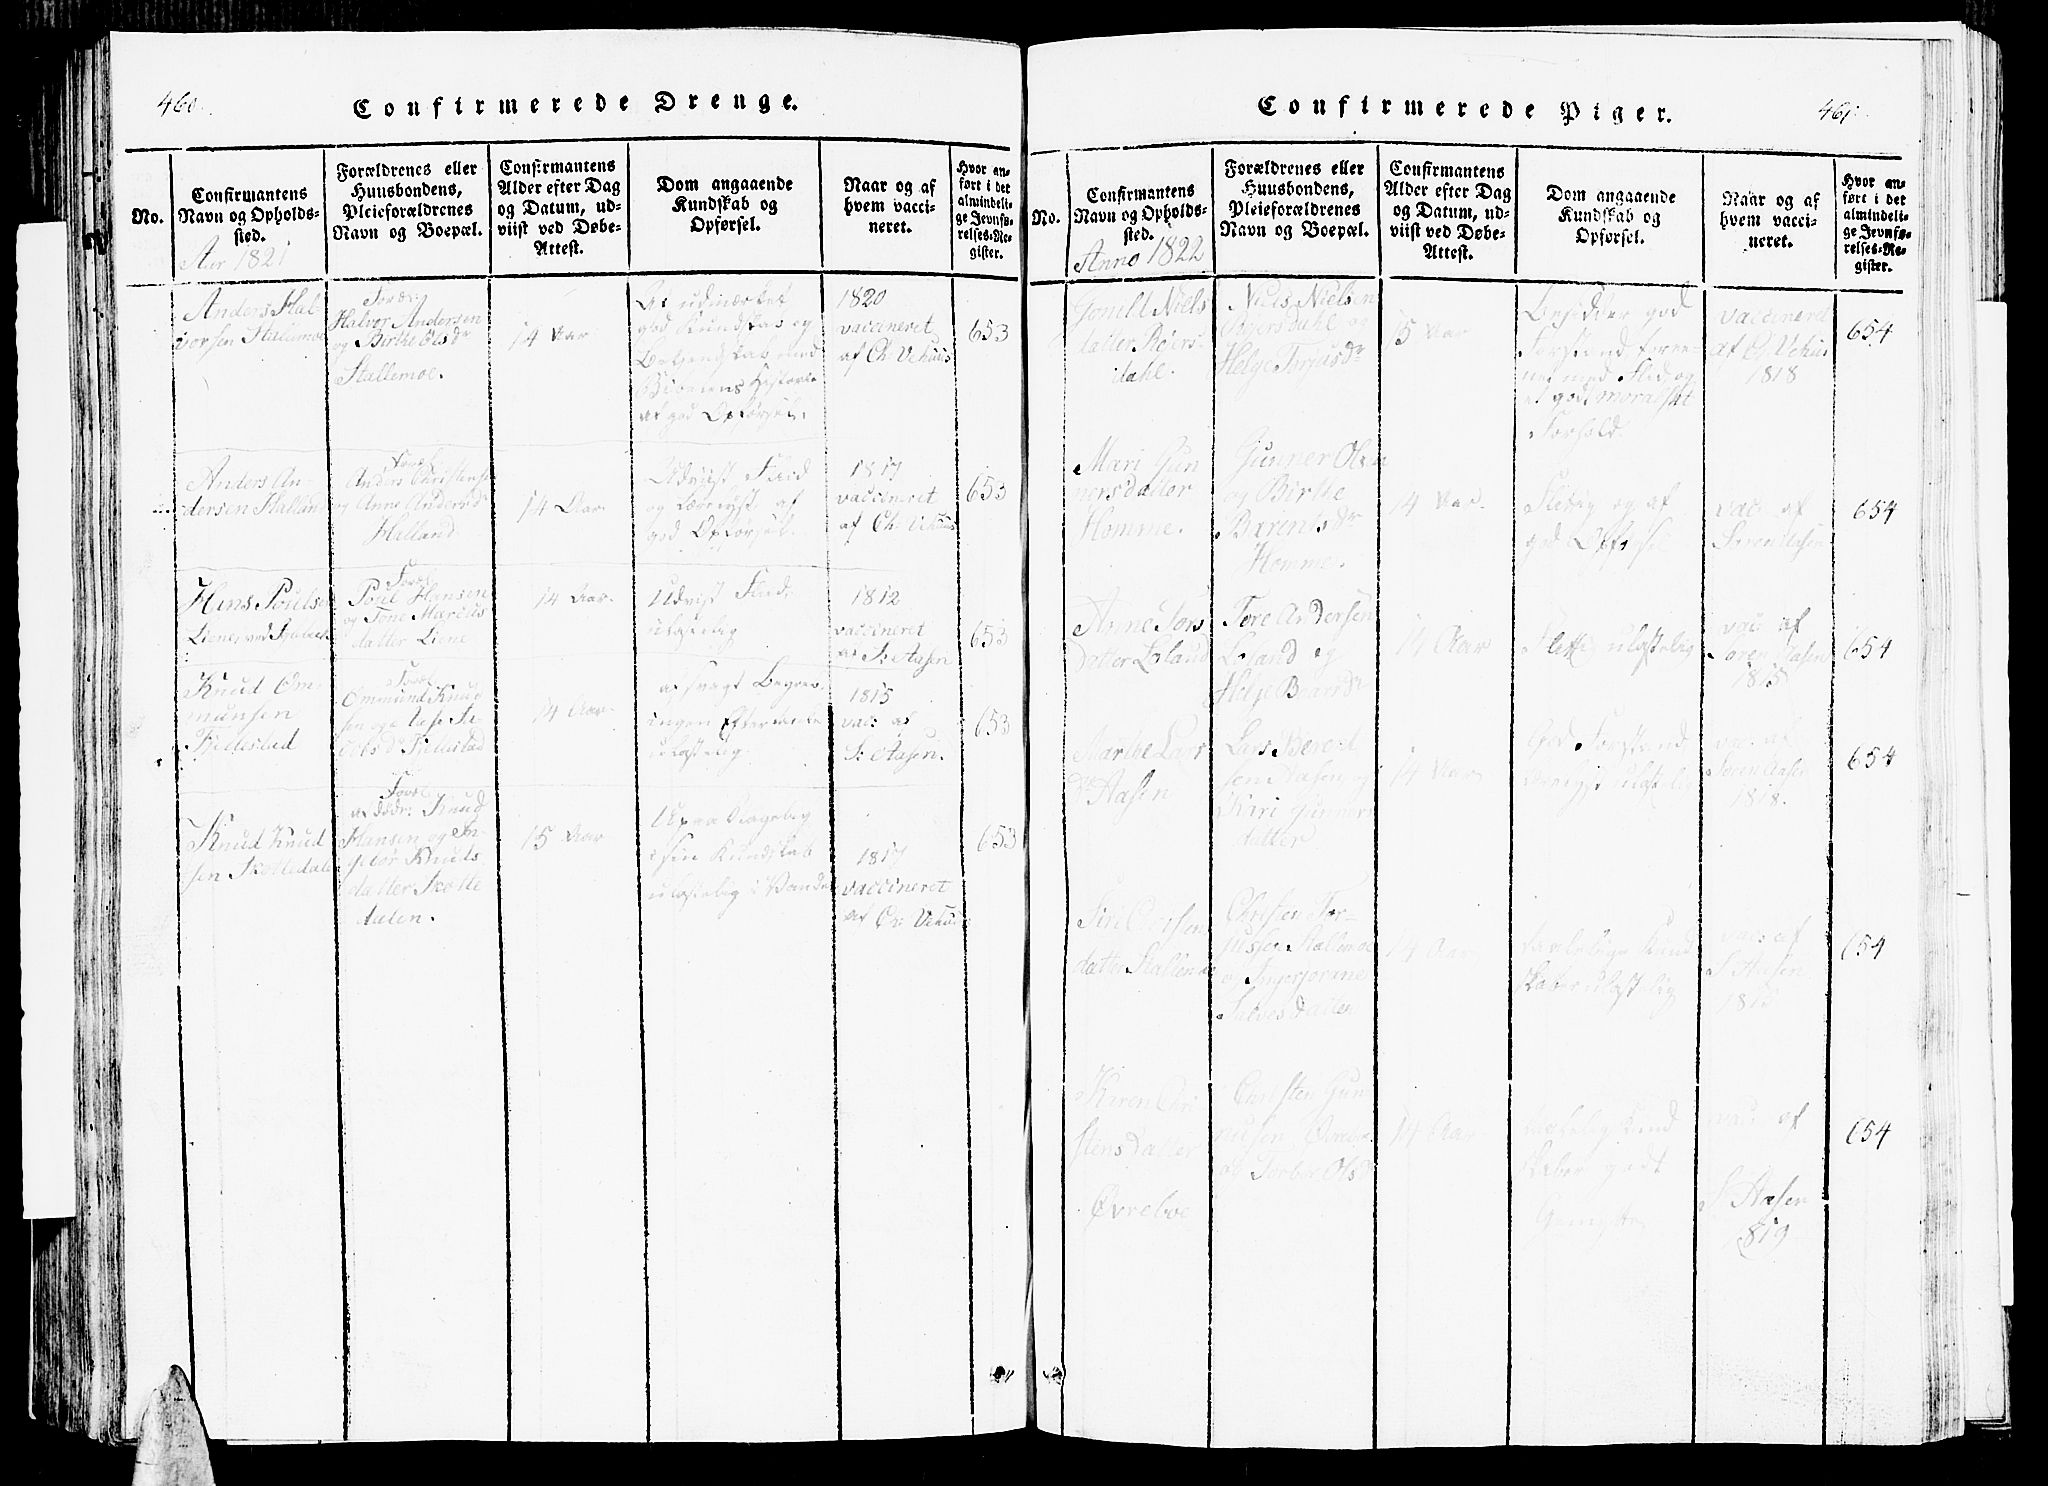 460.
Confirmerede Drenge.
No.
Confirmantens
Navn og Opholds-
sted.
Aar 1821
Forældrenes eller
Huusbondens,
Pleieforældrenes
Navn og Boepæl.
Confirmantens
Alder efter Dag
og Datum, ud-
viist ved Døbe-
Attest.
Dom angaaende
Kundskab og
Opførsel.
Naar og af
hvem vacci-
neret.
Hvor an-
ført i det
almindeli-
ge Jevnfø-
relses-Re-
gister.
Anders Hal-
vorsen Stalemoe
Foræ:
Halvor Andersen
og Birthe Olsdr
Stallemoe.
14 Aar
af udmærket
god Kundskab og
Bekiendskab med
Bibelens Historie
af god Opførsel.
1820
vaccineret
af Ch. Vehuus
653
Anders An-
dersen Halland
Foræl.
Anders Christensen
og Anne Andersdr
Halland
14 Aar.
Udviist Flid
og Lærelyst af
god Opførsel.
1817
vaccineret
af Ch: Vehuus
653
Hans Poulsen
Liene, ved
Foræl.
Poul Hansen
og Tone Marcus
datter Liene
14 Aar.
Udvist Flid
ulastelig
1812
vaccineret
af S: Aasen
653
Knud Om-
munsen
Fjelestad
Foræl.
Ommund Knud
sen og Aase Ja-
cobsdr Fjelestad
14 Aar.
af svagt Begreb
ingen Eftertanke
ulastelig.
1815
vac: af
S: Aasen.
653
Knud Knud
sen Skottedalen
Foræl.
Knud
Hansen og In-
gebor Knuds
datter Skotte
dalen.
15 Aar
i sin Kundskab
ulastelig i Vandel
1817
vaccineret
af Ch: Vehuus
653
Confirmerede Piger.
461.
No.
Confirmantens
Navn og Opholds-
sted.
Anno 1822
Forældrenes eller
Huusbondens,
Pleieforældrenes
Navn og Boepæl.
Confirmantens
Alder efter Dag
og Datum, ud-
viist ved Døbe-
Attest.
Dom angaaende
Kundskab og
Opførsel.
Naar og af
hvem vacci-
neret.
Hvor an-
ført i det
almindeli-
ge Jevnfø-
relses-Re-
gister.
Gonill Niels
datter Røiers
dahl.
Niels Nielsen
Røiersdahl og
Helge Torjusdr
15 Aar
Besidder god
Forstand foree-
net med Flid og
et god moralskt
Forhold.
vaccineret
af Ch Vehuus
1818
654
Mari Gun
nersdatter
Homme.
Gunner Olsen
og Birthe
Barentsdr
Homme.
14 Aar.
Fleidig og af
god Opførsel
vac: af
Søren Aasen
654
Anne Tors
datter Løland
Tore Andersen
Løland og
Helge
14 Aar
Flittig ulastelig
vac af
Søren Aasen
1815
654
Marthe Lars
dr Aasen
Lars Berent
sen Aasen og
Kari Gunners
datter
14 Aar
God Forstand
ulastelig
vac. af
Søren Aasen
1818.
654
Siri Christen
datter Stallemoe
Christen Tor-
jussen Stallemoe
og Ingerjorane
Salvesdatter
14 Aar
taalelige Kund
skaber ulastelig
vac: af
S Aasen
1815
654
Karen Chri
stensdatter
Øvreboe
Christen Gun
nusen Øvreboe
og Torber Olsdr
14 Aar
taalelig Kund
skaber godt
Gemytte
vac af
S Aasen
1819
654